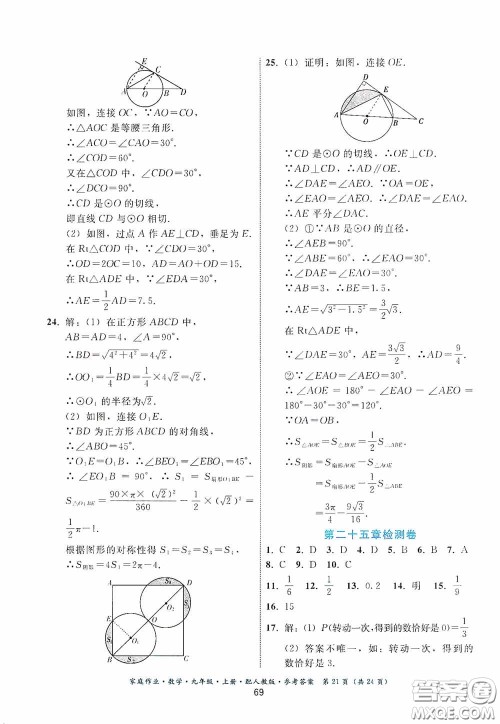 如图,连接OC,∵AO=CO,
∴△AOC是等腰三角形.
∴∠ACO=∠CAO=30°.
∴∠COD=60°.
又在△COD中,∠CDO=30°,
∴∠DCO=90°.
∴CD是⊙O的切线,
即直线CD与⊙O相切.
(2)如图,过点A作AE⊥CD,垂足为E.
在Rt△COD中,∵∠CDO=30°,
∴OD=2OC=10,AD=AO+OD=15.
在Rt△ADE中,∵∠EDA=30°,
∴AE=1/2AD=7.5.
24.解:(1)在正方形ABCD中,
AB=AD=4,∠A=90°.
∴BD=√(4²+4²)=4√2.
∴OO₁=1/4BD=1/4×4√2=√2.
∴⊙O₁的半径为√2.
(2)如图,连接O₁E.
∵BD为正方形ABCD的对角线,
∴∠ABO=45°.
∵O₁E=O₁B,∴∠BEO₁=∠EBO₁=45°.
∴∠EO₁B=90°,∴S₁=S扇形O₁BE-
S△O₁BE=90×π×(√2)²/360-1/2×(√2)²=
1/2π-1.
根据图形的对称性得S₁=S₂=S₃=S₄.
∴S阴影=4S₁=2π-4.
25.(1)证明:如图,连接OE.
∵CD是⊙O的切线,∴OE⊥CD.
∵AD⊥CD,∴AD∥OE.
∴∠DAE=∠AEO.∵OA=OE,
∴∠AEO=∠OAE.∴∠OAE=∠DAE.
∴AE平分∠DAC.
(2)①∵AB是⊙O的直径,
∴∠AEB=90°.
∵∠ABE=60°,∴∠EAB=30°.
∴∠DAE=∠EAB=30°.
在Rt△ABE中,∵AB=3,∴BE=1.5,
∴AE=√(3²-1.5²)=3/2√3.
在Rt△ADE中,AE=3√3/2,∴AD=9/4.
②∵∠EAO=∠AEO=30°,
∴∠AOE=180°-∠EAO-∠AEO=
180°-30°-30°=120°.
∵OA=OB,
∴S△AOE=S△BOE=1/2S△ABE.
∴S阴影=S扇形AOE-S△AOE=S扇形AOE-1/2S△ABE=
3π/4-9√3/16.
第二十五章检测卷
1.C 2.D 3.D 4.D 5.B 6.B 7.A
8.C 9.D 10.C
11.1/6 12.1/2 13.0.2 14.明 15.1/9
16.15
17.解:(1)P(转动一次,得到的数恰好是0)=1/3
(2)答案不唯一,如:转动一次,得到的数恰好是0
家庭作业·数学·九年级·上册·配人教版·参考答案 第21页(共24页)
69